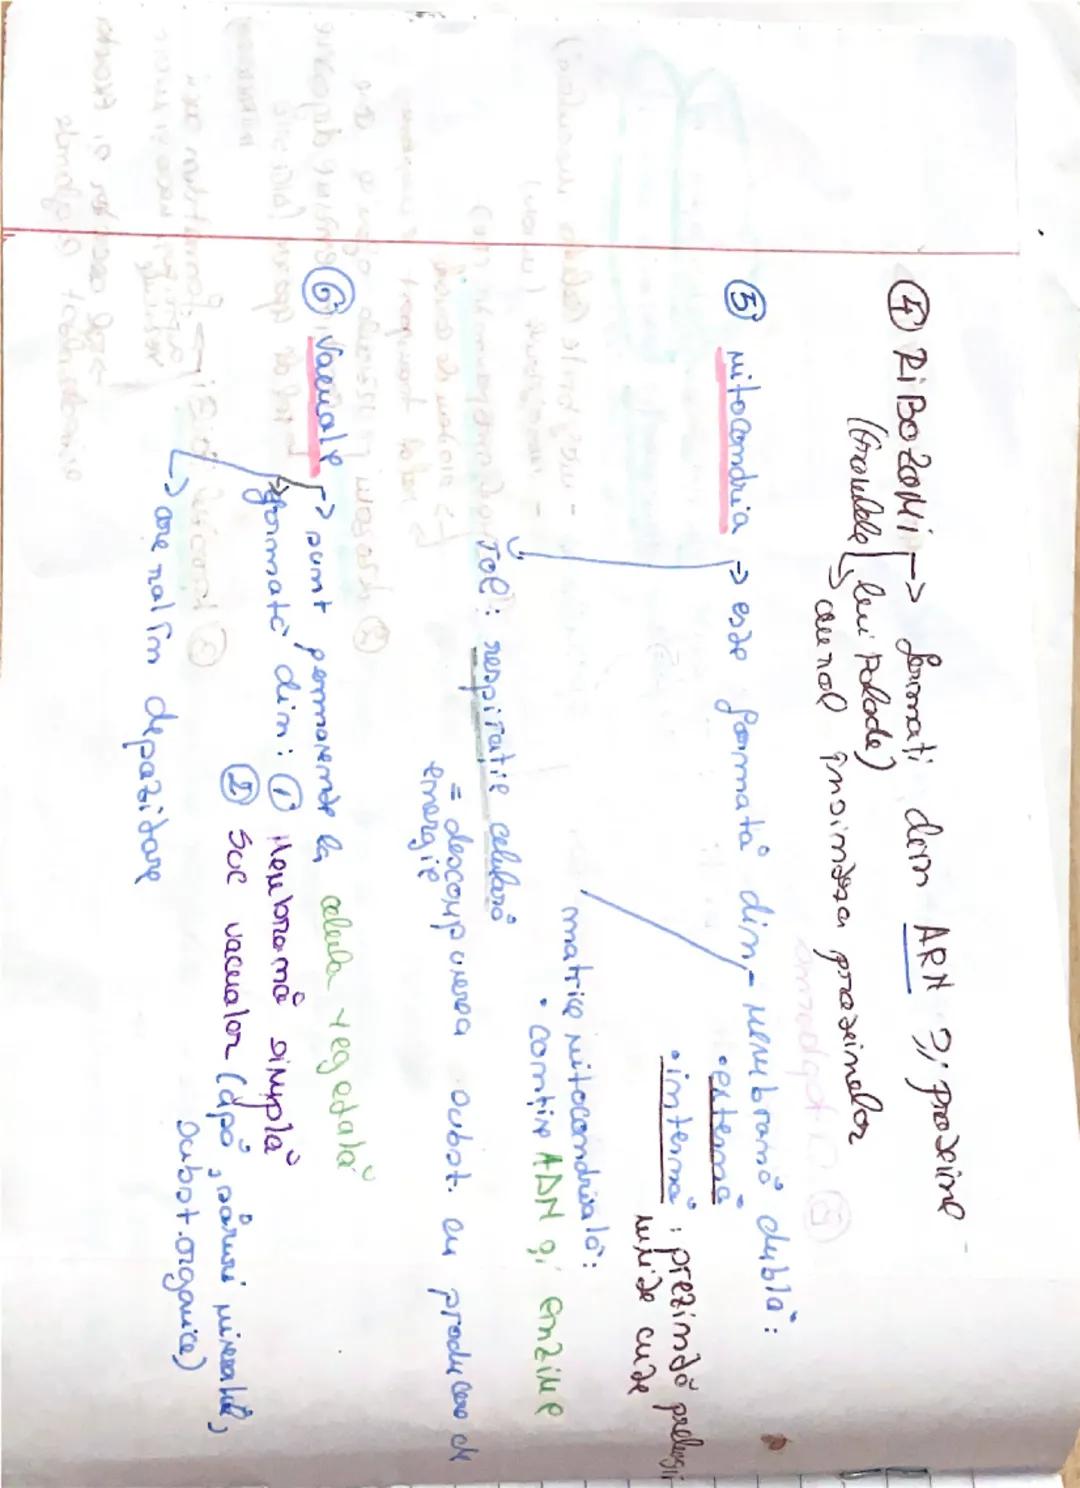 ④ RiBOZOMi -> formați din ARN și proteine
(Granulele lui Palade)
-> au rol în sinteza proteinelor
⑤ mitocondria -> este formată din - membrană dublă:
• externă
• internă : prezintă prelungiri
numite criste
matrice mitocondrială:
• conține ADN și enzime
rol: respirație celulară
= descompunerea subst. cu producere de
energie
⑥ Vacuole -> sunt permanente la celula vegetală
-> formate din: ① Membrană simplă
② Suc vacuolar (apă, săruri minerale,
subst. organice)
-> are rol în depozitare